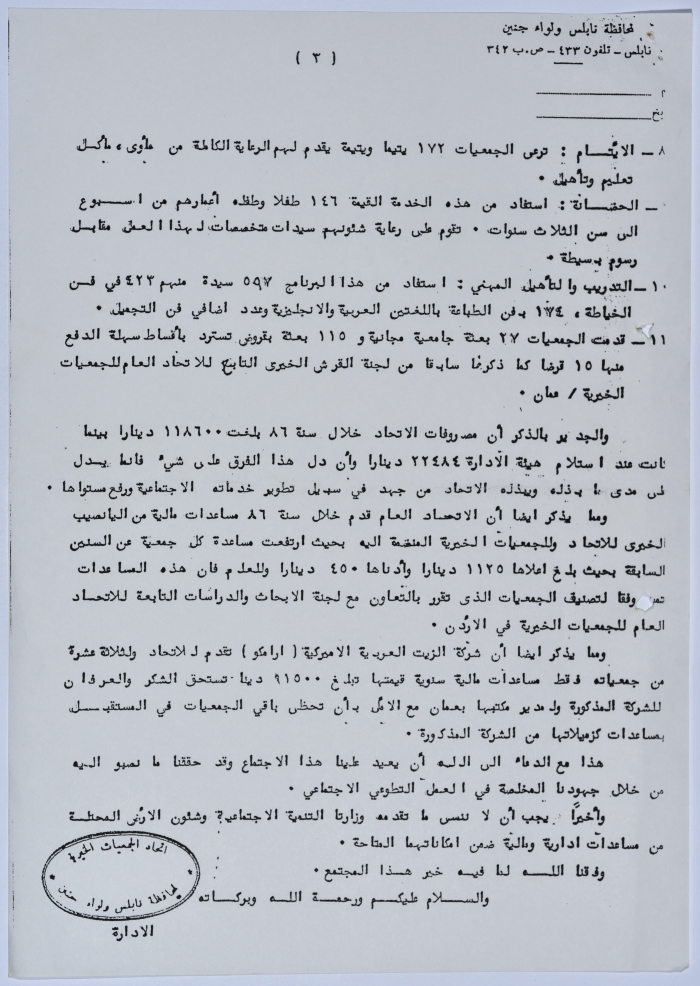 لمحافظة نابلس ولواء جنين
نابلس - تلفون ٤٣٣ - ص.ب ٣٤٢
( ٣ )
٨ - الايتام : ترعى الجمعيات ١٧٢ يتيما ويتيمة يقدم لهم الرعاية الكاملة من مأوى ، مأكل
تعليم وتأهيل .
- الحضانة : استفاد من هذه الخدمة القيمة ١٤٦ طفلا وطفله أعمارهم من اسبوع
الى سن الثلاث سنوات . تقوم على رعاية شئونهم سيدات متخصصات لهذا العمل مقابل
رسوم بسيطة .
١٠ - التدريب والتأهيل المهني : استفاد من هذا البرنامج ٥٩٧ سيدة منهم ٤٢٣ في فن
الخياطة ، ١٧٤ بفن الطباعة باللغتين العربية والانجليزية وعدد اضافي فن التجميل .
١١ - قدمت الجمعيات ٢٧ بعثة جامعية مجانية و ١١٥ بعثة بقروض تسترد بأقساط سهلة الدفع
منها ١٥ قرضا كما ذكرنا سابقا من لجنة القرش الخيرى التابع للاتحاد العام للجمعيات
الخيرية / عمان .
والجدير بالذكر أن مصروفات الاتحاد خلال سنة ٨٦ بلغت ١١٨٦٠٠ دينارا بينما
كانت عند استلام هيئة الادارة ٢٢٤٨٤ دينارا وأن دل هذا الفرق على شيء فانما يدل
على مدى ما بذله ويبذله الاتحاد من جهد في سبيل تطوير خدماته الاجتماعية ورفع مستواها .
ومما يذكر ايضا أن الاتحاد العام قدم خلال سنة ٨٦ مساعدات مالية من اليانصيب
الخيرى للاتحاد وللجمعيات الخيرية المنضمة اليه بحيث ارتفعت مساعدة كل جمعية عن السنين
السابقة بحيث بلغ اعلاها ١١٢٥ دينارا وأدناها ٤٥٠ دينارا وللعلم فان هذه المساعدات
وفقا لتصنيف الجمعيات الذى تقرر بالتعاون مع لجنة الابحاث والدراسات التابعة للاتحاد
العام للجمعيات الخيرية في الأردن .
ومما يذكر ايضا أن شركة الزيت العربية الاميركية ( ارامكو ) تقدم للاتحاد ولثلاثة عشرة
من جمعياته فقط مساعدات مالية سنوية قيمتها تبلغ ٩١٥٠٠ دينا تستحق الشكر والعرفان
للشركة المذكورة ولمدير مكتبها بعمان مع الامل بأن تحظى باقي الجمعيات في المستقبل
بمساعدات كزميلاتها من الشركة المذكورة .
هذا مع الدعاء الى الله أن يعيد علينا هذا الاجتماع وقد حققنا ما نصبو اليه
من خلال جهودنا المخلصة في العمل التطوعي الاجتماعي .
وأخيرا يجب أن لا ننسى ما تقدمه وزارتا التنمية الاجتماعية وشئون الارض المحتلة
من مساعدات ادارية ومالية ضمن امكاناتهما المتاحة .
وفقنا الله لما فيه خير هذا المجتمع .
والسلام عليكم ورحمة الله وبركاته
اتحاد الجمعيات الخيرية
لمحافظة نابلس ولواء جنين
الادارة